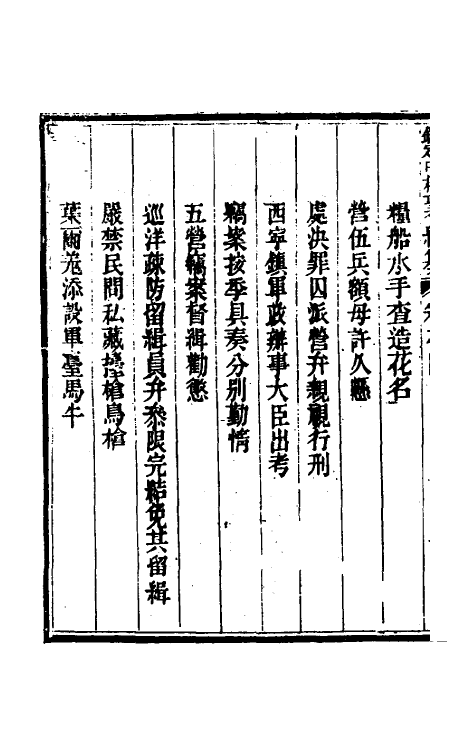 糧船水手查造花名
營伍兵額毋許久懸
處決罪囚派營弁親視行刑
西寧鎮軍政辦事大臣出考
竊案按季具奏分別勤惰
五營竊案督緝勸懲
巡洋疎防留緝員弁叅限完結免其留緝
嚴禁民間私藏擡槍鳥槍
葉爾羌添設軍臺馬牛